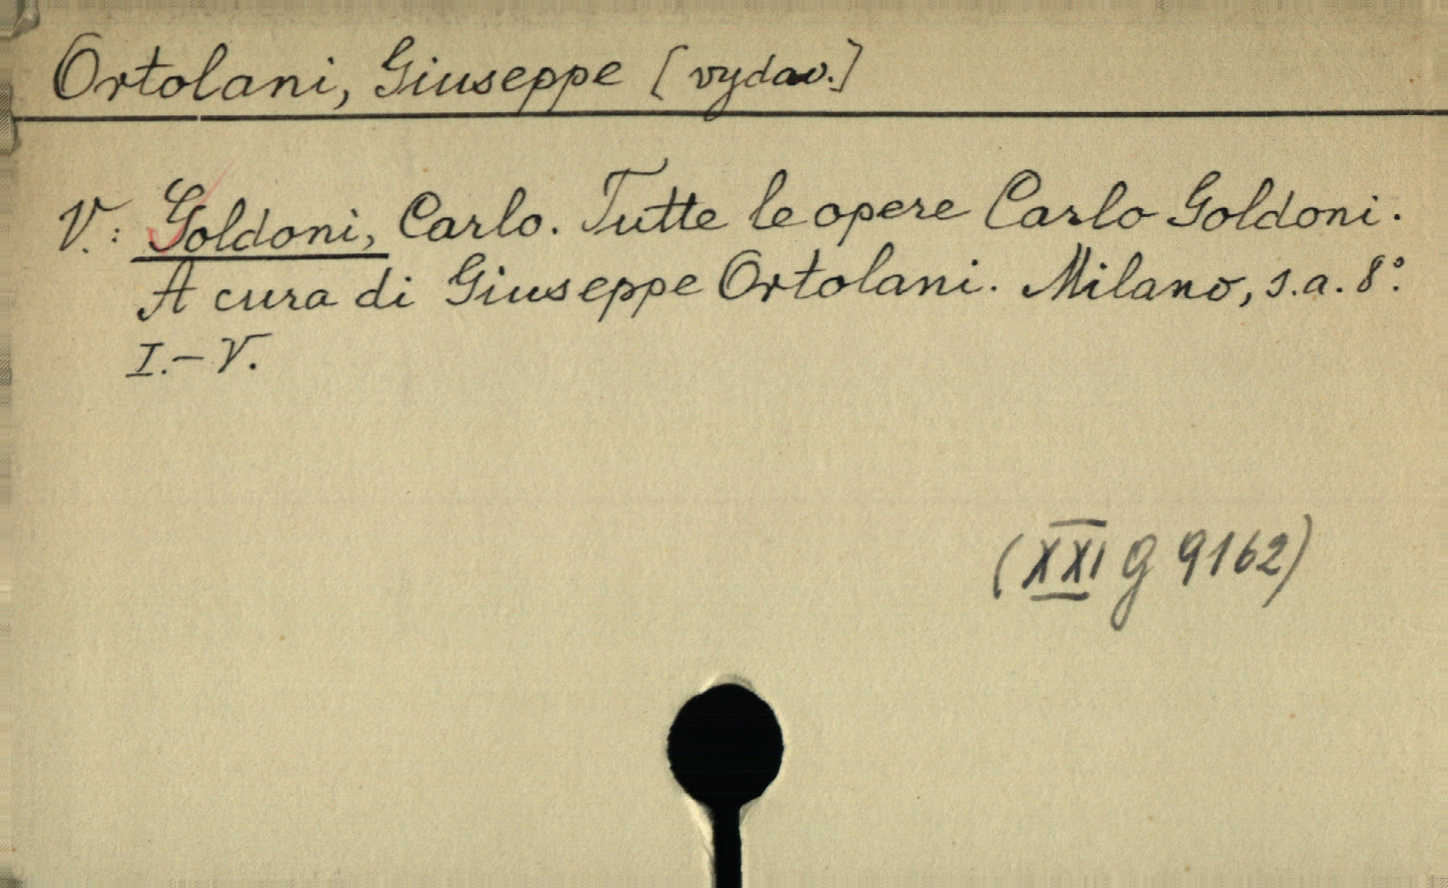 Ortolani, Giuseppe [vydav.]
V.: Goldoni, Carlo. Tutte le opere Carlo Goldoni.
A cura di Giuseppe Ortolani. Milano, s.a. 8°.
I.–V.
(XXI g 9162)